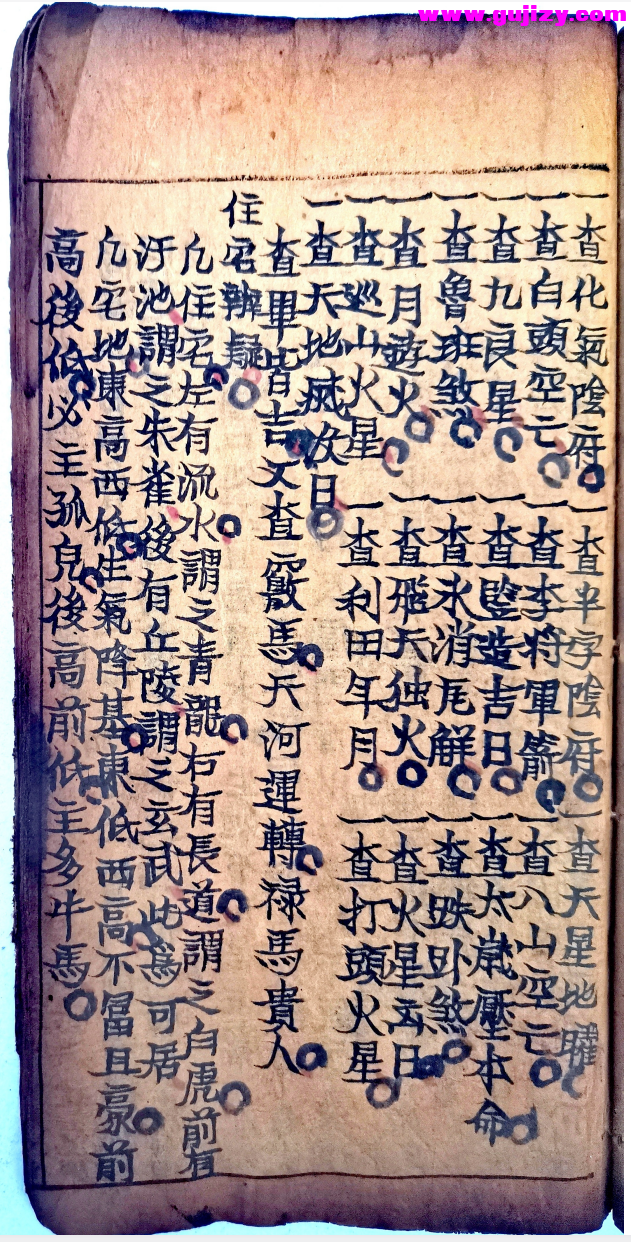 www.gujizy.com
一查化氣陰府 一查半字陰府 一查天星地曜
一查白頭空亡 一查李將軍箭 一查八山空亡
一查九良星 一查竪造吉日 一查太歲壓本命
一查魯班煞 一查氷消瓦觧 一查跌卧煞
一查月遊火 一查飛天独火 一查火星玄日
一查巡山火星 一查利田年月 一查打頭火星
一查天地烕次日
查畢皆吉又查竅馬天河運轉禄馬貴人
住宅辦疑
凢住宅左有流水謂之青龍右有長道謂之白虎前有
汙池謂之朱雀後有丘陵謂之玄武此爲可居
凢宅地東高西低生氣降基東低西高不冨且豪前
高後低必主孤皃後高前低主多牛馬